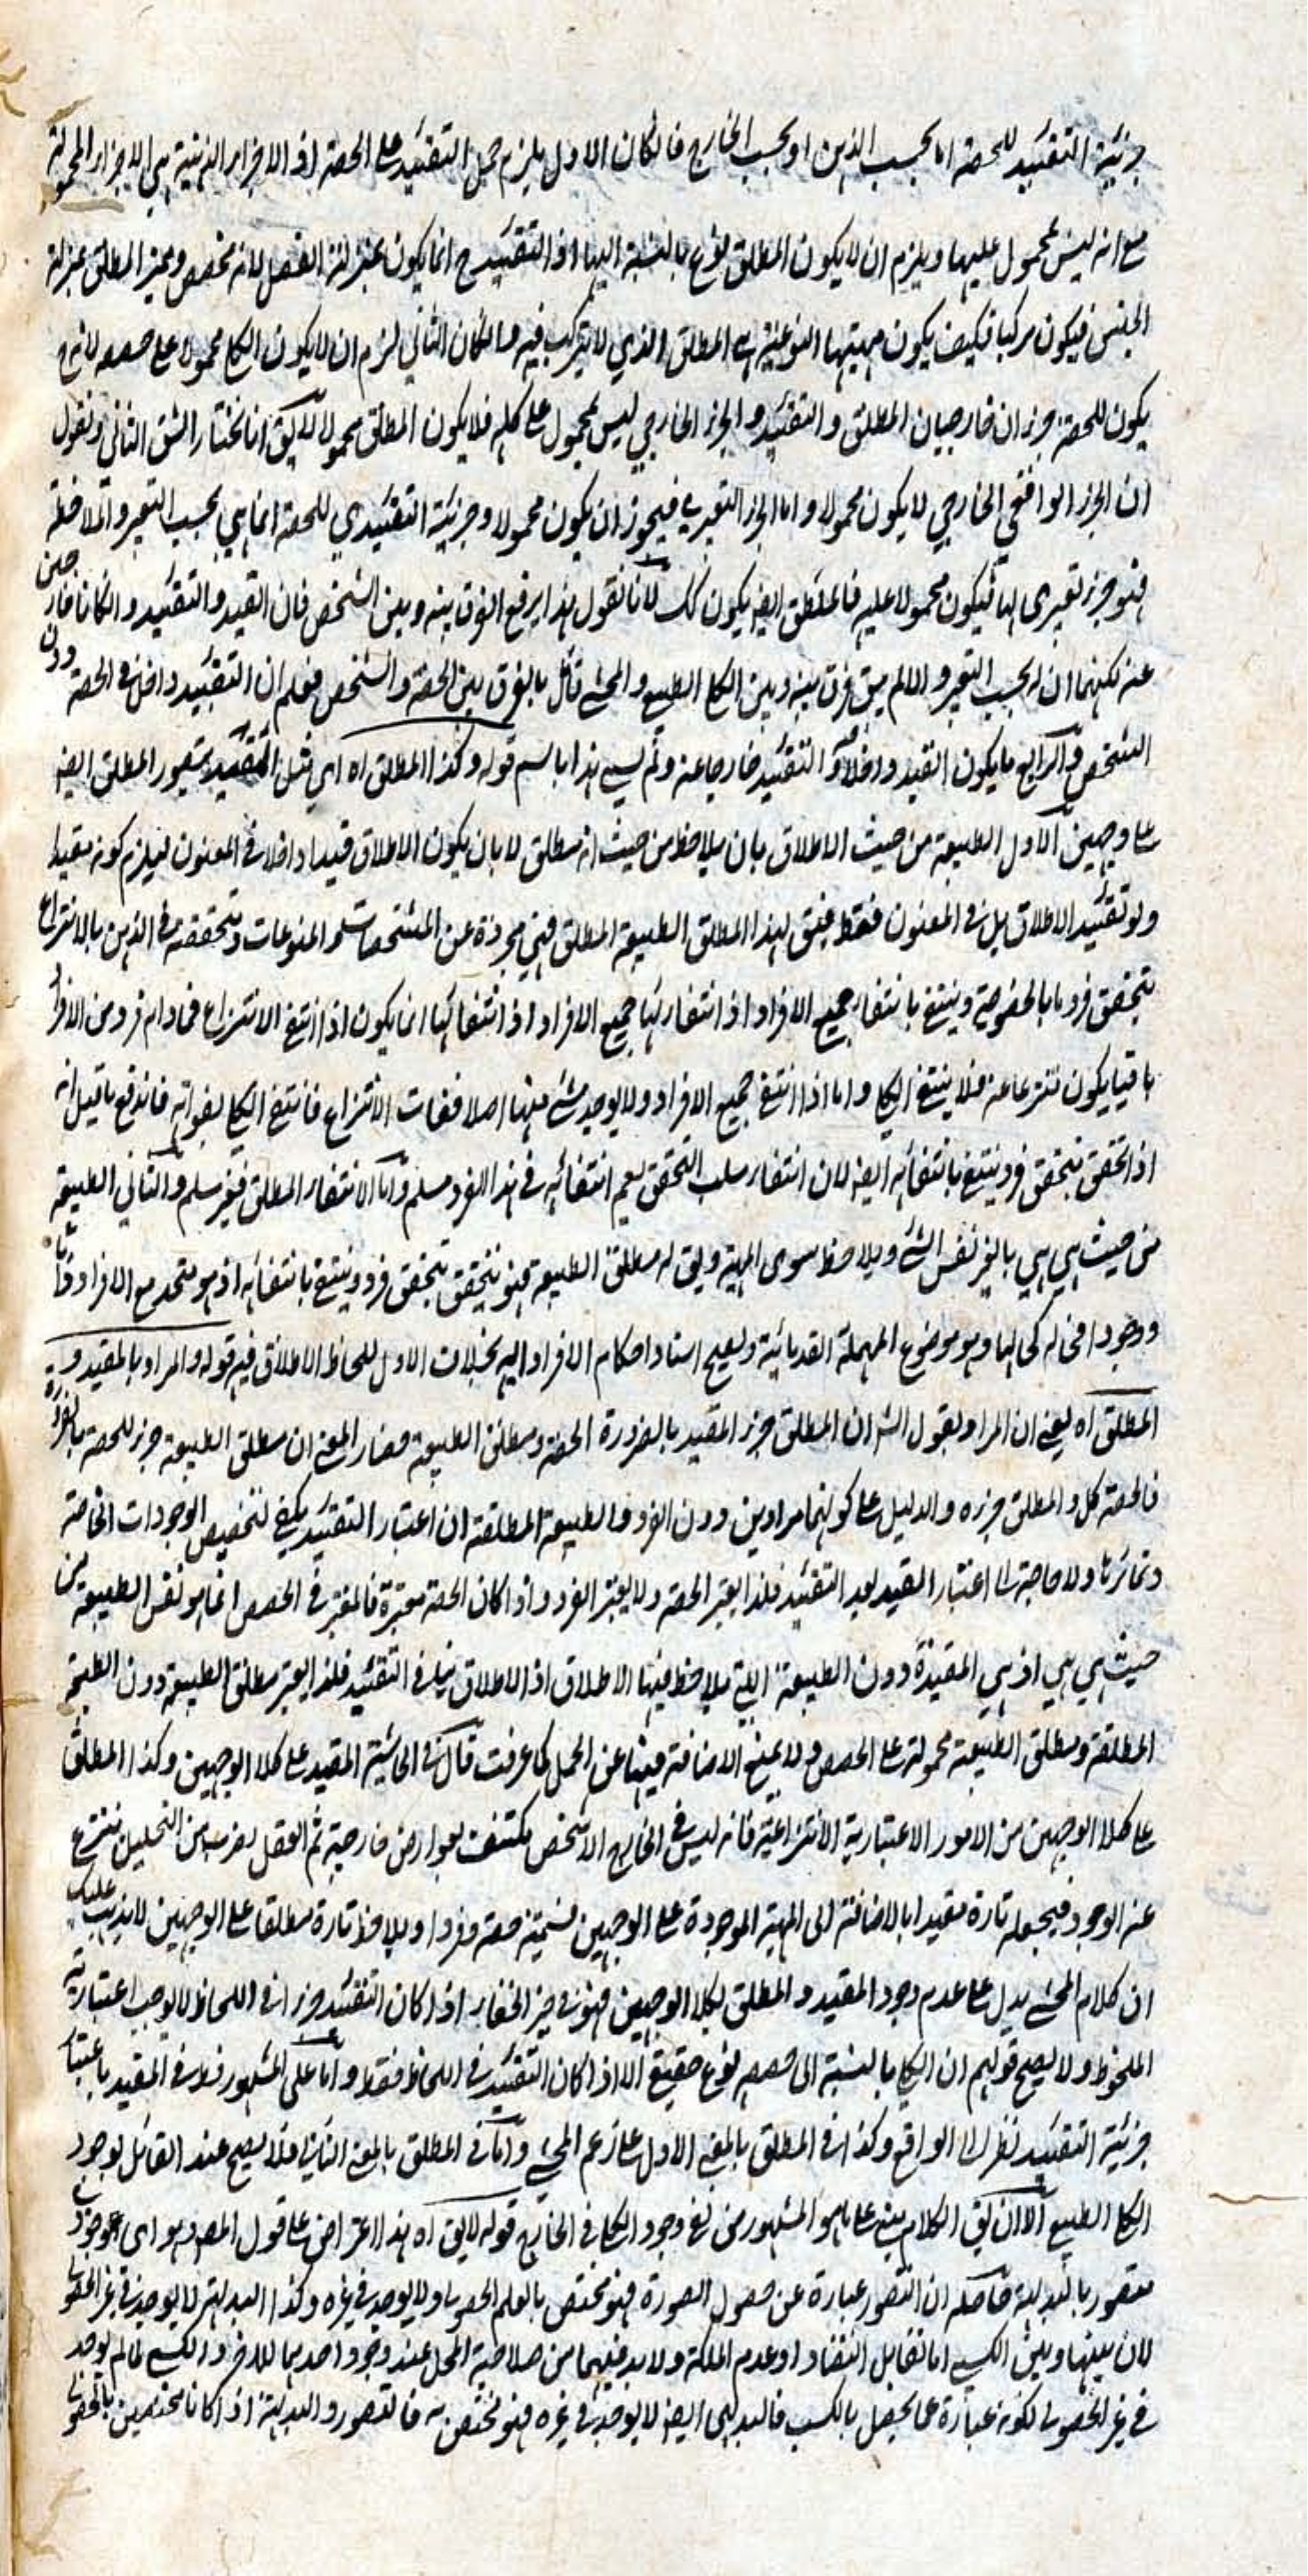 جزئية التقئيد للحصة اما بحسب الذهن او بحسب الخارج فانكان الاول يلزم حمل التقئيد على الحصة اذ الاجزاء الذهنية هي الاجزاء المحمولة
مع انه ليس بمحمول عليها ويلزم ان لا يكون المطلق نوع بالنسبة اليها اذ التقئيد ح انما يكون بمنزلة الفصل لانه مخصص ومميز المطلق بمنزلة
الجنس فيكون مركبا فكيف يكون مهيتها النوعية هو المطلق الذي لا تركب فيه وانكان الثاني لزم ان لا يكون الكلي محمولا على حصصه لانه ح
يكون للحصة جزءان خارجيان المطلق والتقئيد والجزء الخارجي ليس بمحمول على كله فلا يكون المطلق محمولا لا يق انا نختار الشق الثاني ونقول
ان الجزء الواقعي الخارجي لا يكون محمولا واما الجزء التعبيري فيجوز ان يكون محمولا وجزئية التقئيدي للحصة انما هي بحسب التعبير والملاحظة
فهو جزء تعبيري لها فيكون محمولا عليه فالمطلق ايضا يكون كك لانا نقول هذا يرفع الفرق بينه وبين الشخص فان القيد والتقئيد وانكانا خارجين
عنه لكنهما داخلان بحسب التعبير والا لم يبق فرق بينه وبين الكلي الطبيعي والمحشي قائل بالفرق بين الحصة والشخص فعلم ان التقئيد داخل في الحصة دون
الشخص والرابع ما يكون القيد داخلا والتقئيد خارجا عنه ولم يسم هذا باسم قوله وكذا المطلق اه اي مثل المقيد يتصور المطلق ايضا
على وجهين الاول الطبيعة من حيث الاطلاق بان يلاحظ من حيث انه مطلق لا بان يكون الاطلاق قيدا داخلا في المعنون ليلزم كونه مقيدا
ولو تقئيد الاطلاق بل في العنوان فقط فيق لهذا المطلق الطبيعة المطلقة فهي مجردة عن المشخصات والمنوعات وتحققه في الذهن بالانتزاع
يتحقق فرد ما بالخصوصية وينتفي بانتفاء جميع الافراد اذ انتفاؤها انما يكون اذا انتفى الانتزاع فما دام فرد من الافراد
باقيا يكون منتزعا عنه فلا ينتفي الكلي واما اذا انتفى جميع الافراد ولا يوجد شئ منها اصلا ففات الانتزاع فانتفى الكلي بفواته فاندفع ما قيل انه
اذا تحقق بتحقق فرد ينتفي بانتفائه ايضا لان انتفاء سلب التحقق نعم انتفائه في هذا الفرد مسلم واما الانتفاء المطلق فغير مسلم والثاني الطبيعة
من حيث هي هي يا لغير نفس الشئ ويلاحظ سوى المهية ويق له مطلق الطبيعة فهو يتحقق بتحقق فرد وينتفي بانتفائه اذ هو متحد مع الافراد ذاتا
ووجودا فحاله كحالها وهو موضوع المهملة القدمائية ويصح اسناد احكام الافراد اليه بخلاف الاول للحاظ الاطلاق فيه قوله والمراد بالمقيد و
المطلق اه يعني ان المراد بقول الش ان المطلق جزء المقيد بالضرورة الحصة ومطلق الطبيعة فصار المعنى ان مطلق الطبيعة جزء للحصة بالضرورة
فالحصة كل والمطلق جزءه والدليل على كونهما مرادين دون الفرد والطبيعة المطلقة ان اعتبار التقئيد يكفي لتخصيص الوجودات الخاصة
وتمائزها ولا حاجة الى اعتبار القيد بعد التقئيد فلذا يعتبر الحصة ولا يعتبر الفرد واذا كان الحصة معتبرة فالمعتبر في الحصص انما هو نفس الطبيعة من
حيث هي هي اذ هي المقيدة دون الطبيعة التي يلاحظ فيها الاطلاق اذ الاطلاق ينافي التقئيد فلذا يعتبر مطلق الطبيعة دون الطبيعة
المطلقة ومطلق الطبيعة محمولة على الحصص ولا يمنع الاضافة فيها عن الحمل كما عرفت قال في الحاشية المقيد على كلا الوجهين وكذا المطلق
على كلا الوجهين من الامور الاعتبارية الانتزاعية فانه ليس في الخارج الا شخص مكتنف بعوارض خارجية ثم العقل بضرب من التحليل ينتزع
عنه الوجود فيجعله تارة مقيدا بالاضافة الى المهية الموجودة على الوجهين فسميته حصة وفردا ويلاحظ تارة مطلقا على الوجهين لا يذهب عليك
ان كلام المحشي يدل على عدم وجود المقيد والمطلق بكلا الوجهين فهو في حيز الخفاء اذ اكان التقئيد جزءا في اللحاظ لا يوجب اعتبارية
الملحوظ ولا يصح قولهم ان الكلي بالنسبة الى حصصه نوع حقيقي الا اذا كان التقئيد في اللحاظ فقط واما على المشهور فلا في المقيد باعتبار
جزئية التقئيد نظرا الى الواقع وكذا في المطلق بالمعنى الاول على زعم المحشي واما في المطلق بالمعنى الثاني فلا يصح عند القائل بوجود
الكلي الطبيعي الا ان يق الكلام مبني على ما هو المشهور من نفي وجود الكلي في الخارج قوله لا يق اه هذا اعتراض على قول المصد هو اي الوجود
متصور بالبديهة حاصله ان التصور عبارة عن حصول الصورة فهو مختص بالعلم الحصولي ولا يوجد في غيره وكذا البديهة لا يوجد في غير الحصولي
لان بينها وبين الكسبي اما تقابل التضاد او عدم الملكة ولا بد فيهما من صلاحية المحل عند وجود احدهما للاخر والكسبي لما لم يوجد
في غير الحصولي لكونه عبارة عما يحصل بالكسب فالبديهي ايضا لا يوجد في غيره فهو مختص به فالتصور والبديهة اذا كانا مختصين بالحصولي